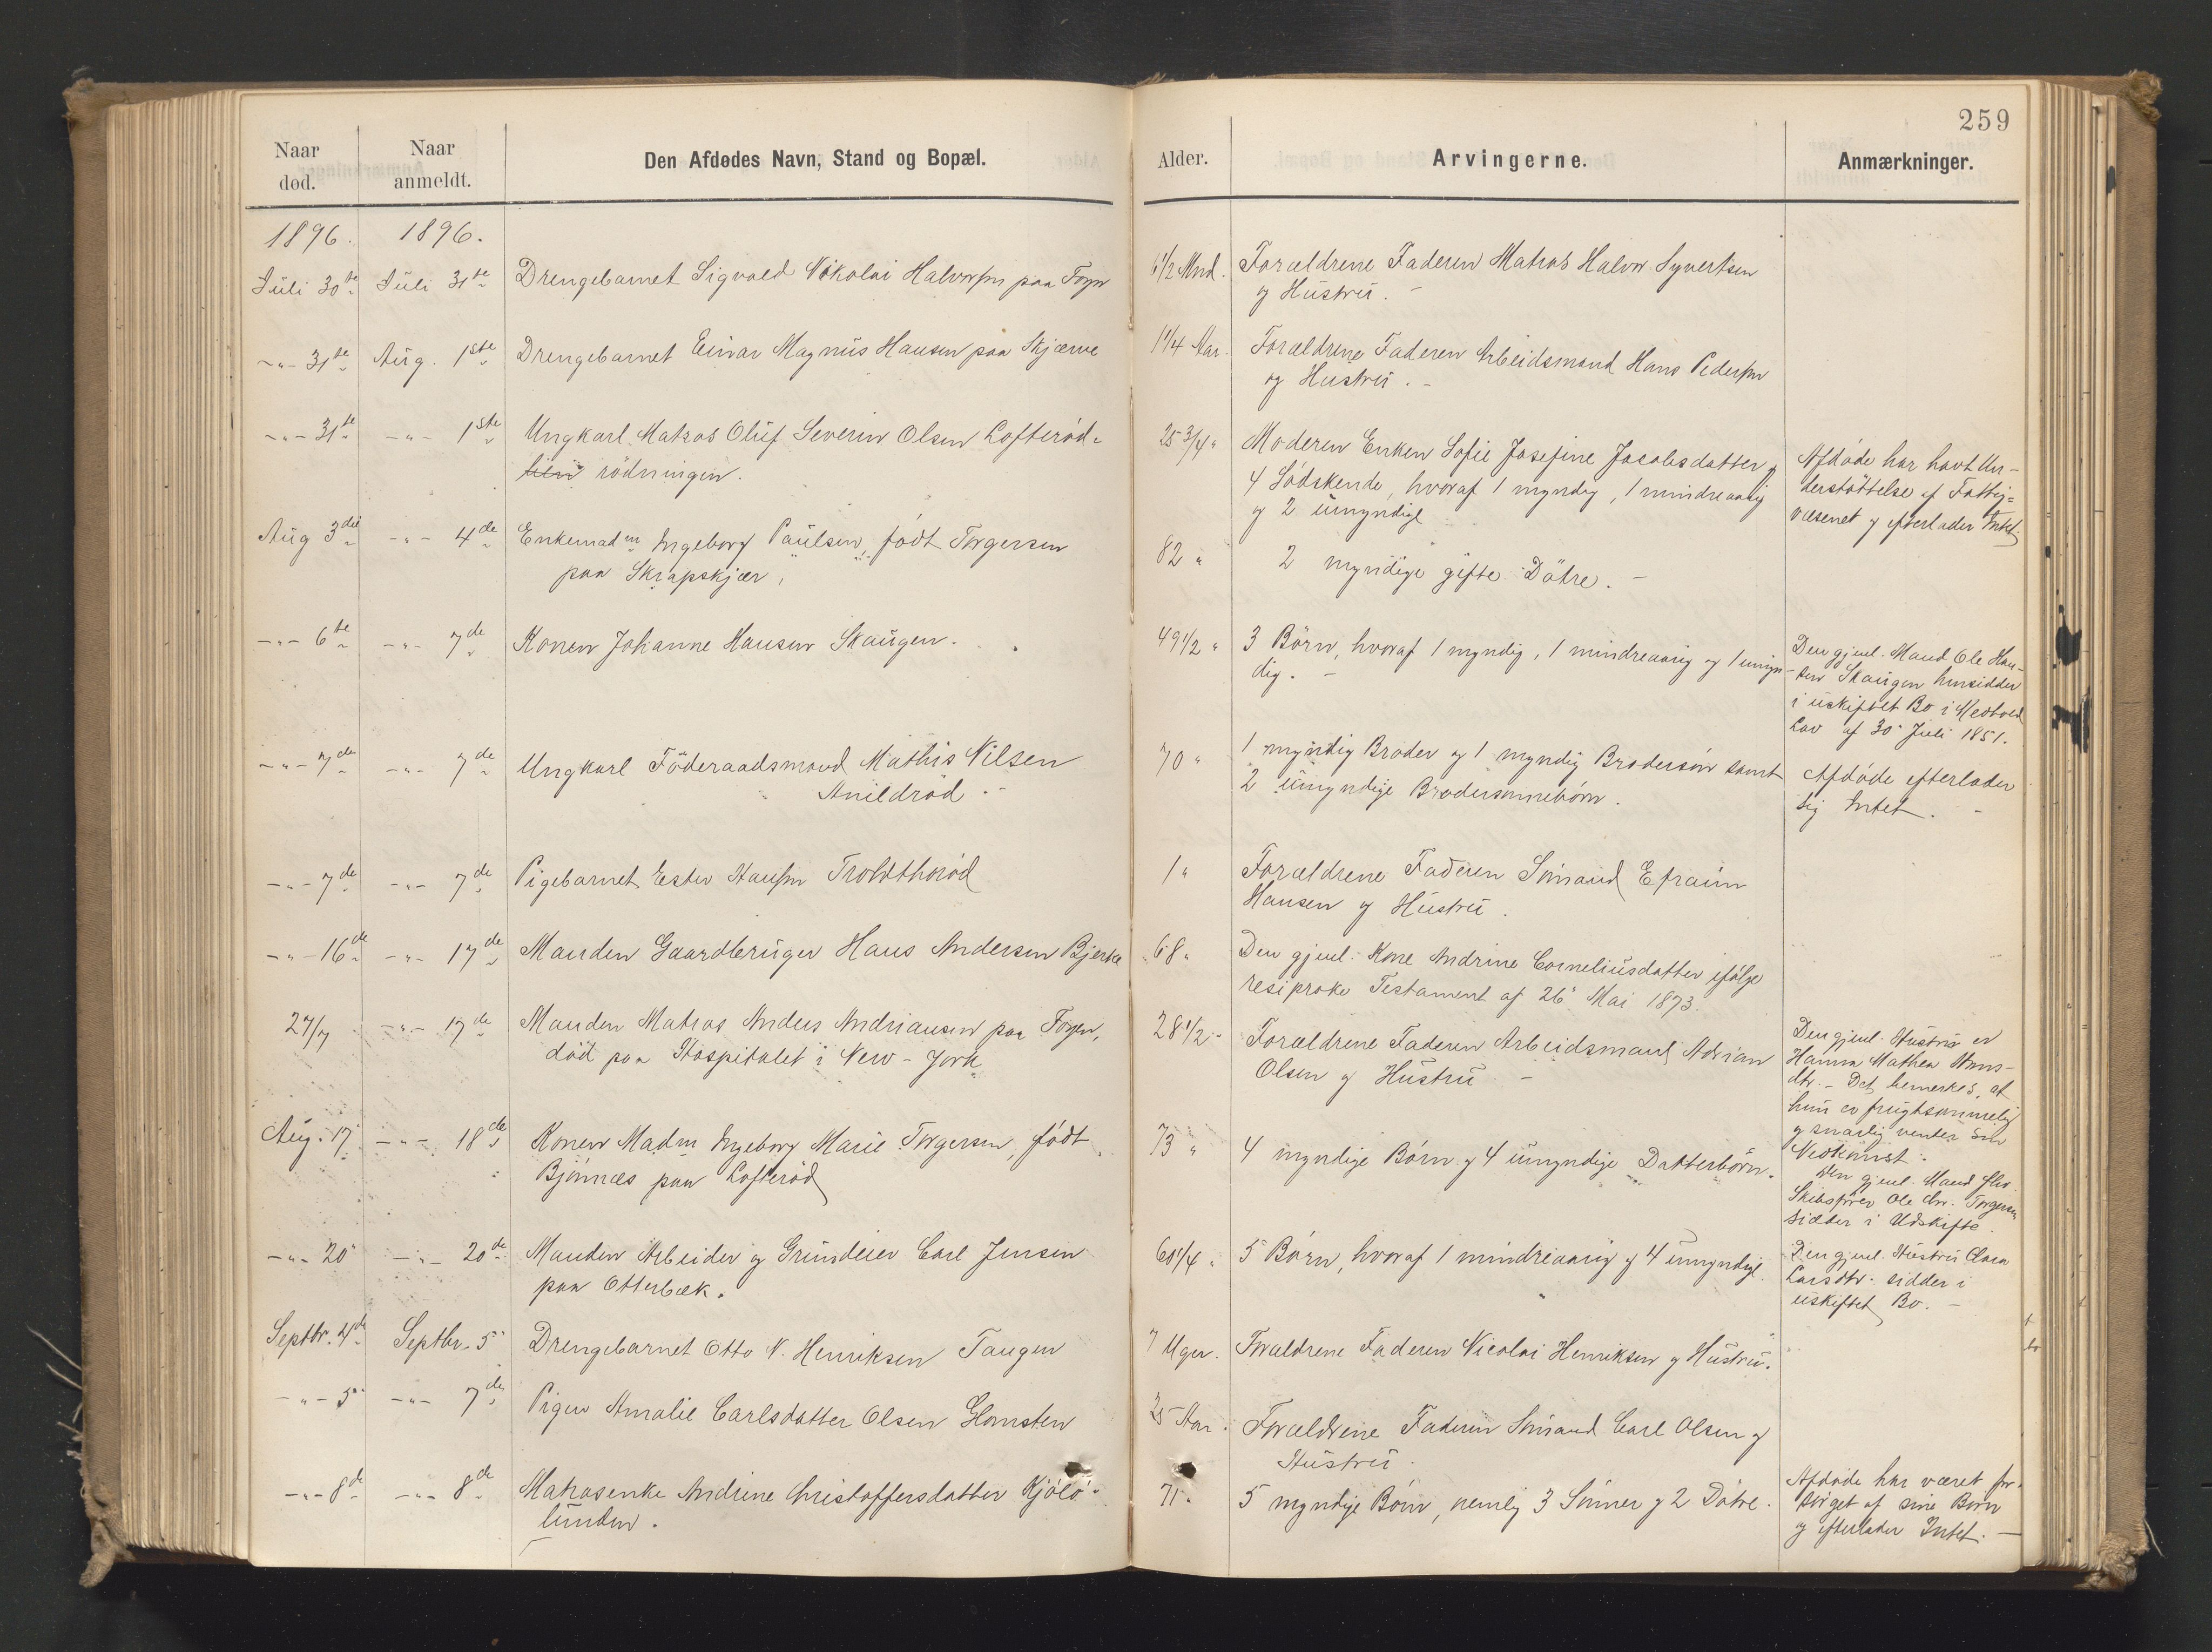 259
Naar død. Naar anmeldt. Den Afdødes Navn, Stand og Bopæl. Alder. Arvingerne. Anmærkninger.
1896. 1896.
Juli 30te Juli 31te Drengebarnet Sigvald Nikolai Halvorsen paa Foyn 6 1/2 Mnd. Forældrene Faderen Matros Halvor Syvertsen
og Hustru. -
-"- 31te Aug. 1ste Drengebarnet Einar Magnus Hansen paa Skjærve 1 1/4 Aar. Forældrene Faderen Arbeidsmand Hans Pedersen
og Hustru. -
-"- 31te -"- 1ste Ungkarl Matros Oluf Severin Olsen Lofteröd- 25 3/4 " Moderen Enken Sofie Josefine Jacobsdatter og
rödningen.
4 Södskende, hvoraf 1 myndig, 1 mindreaarig
og 2 umyndige
Afdöde har havt Un-
derstöttelse af Fattig-
væsenet og efterlader Intet.
Aug 3die -"- 4de Enkemadm Ingeborg Paulsen, födt Torgersen 82 " 2 myndige gifte Dötre. -
paa Skrapskjær,
-"- 6te -"- 7de Konen Johanne Hansen Skaugen. 49 1/2 " 3 Börn, hvoraf 1 myndig, 1 mindreaarig og 1 umyn-
dig. -
Den gjenl. Mand Ole Han-
sen Skaugen hensidder
i uskiftet Bo i Medhold
Lov af 30' Juli 1851.
-"- 7de -"- 7de Ungkarl Föderaadsmand Mathis Nilsen 70 " 1 myndig Broder og 1 myndig Brodersön samt
Anildröd --
2 umyndige Brodersønnebörn.
Afdöde efterlader
sig Intet. -
-"- 7de -"- 7de Pigebarnet Ester Hansen Troldthoröd 1 " Forældrene Faderen Sömand Efraim
Hansen og Hustru.
-"- 16de -"- 17de Manden Gaardbruger Hans Andersen Bjerke 68 " Den gjenl. Kone Andrine Corneliusdatter ifölge
resiproke Testament af 26' Mai 1873.
27/7 -"- 17de Manden Matros Anders Andriansen paa Foyen, 28 1/2 " Forældrene Faderen Arbeidsmand Adrian
död paa Hospitalet i New-York
Olsen og Hustru -
Den gjenl. Hustru er
Hanna Mathea Hans-
dtr. - Det bemerkes, at
hun er frugtsommelig
og snarlig venter sin
Nedkomst.
Aug. 17 -"- 18de Konen Madm Ingeborg Marie Torgersen, födt 73 " 4 myndige Börn og 4 umyndige Datterbörn.
Bjönnæs paa Lofteröd
Den gjenl. Mand
Skibsförer Ole Chr. Torgersen
sidder i Uskifte.
-"- 20' -"- 20de Manden Arbeider og Grundeier Carl Jensen 60 1/4 " 5 Börn, hvoraf 1 mindreaarig og 4 umyndige.
paa Otterbæk.
Den gjenl. Hustru Clara
Larsdtr. sidder i
uskiftet Bo. -
Septbr. 4de Septbr. 5' Drengebarnet Otto N. Henriksen Tangen 7 Uger. Forældrene Faderen Nicolai Henriksen og Hustru.
-"- 5' -"- 7de Pigen Amalie Carlsdatter Olsen Glomsten 25 Aar. Forældrene Faderen Sömand Carl Olsen og
Hustru.
-"- 8de -"- 8de Matrosenke Andrine Christoffersdatter Kjölö- 71 " 5 myndige Börn, nemlig 3 Sönner og 2 Dötre.
lunden.
Afdöde har været for-
sörget af sine Börn
og efterlader Intet. -